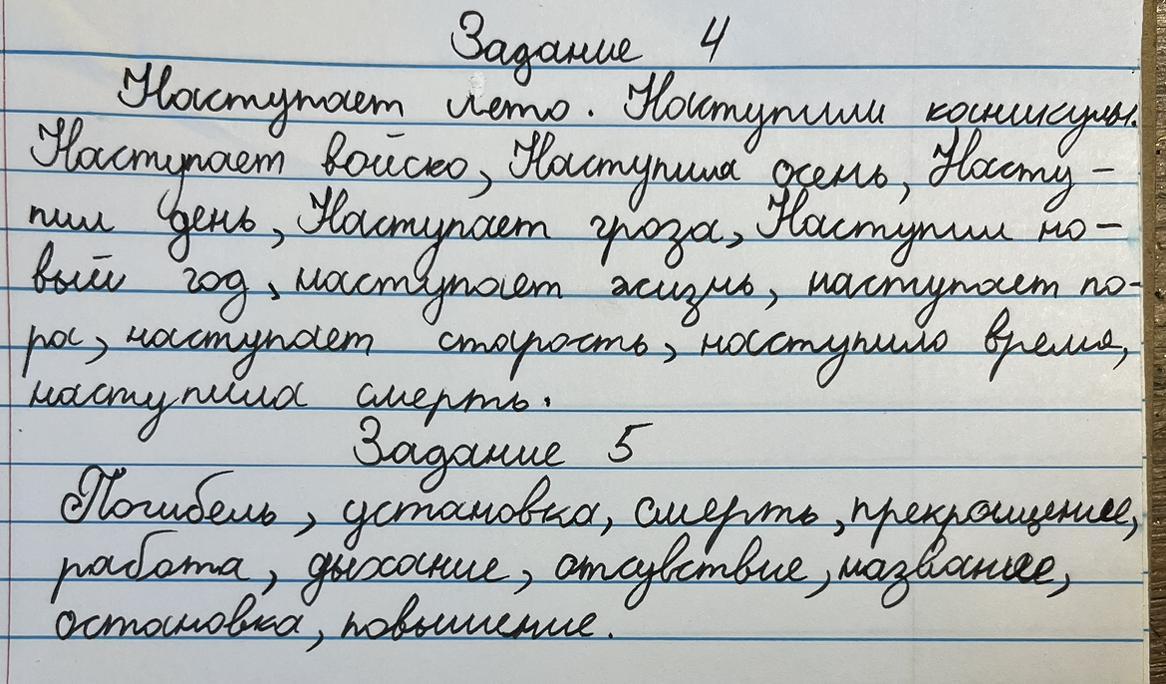 Задание 4
Наступает лето. Наступили каникулы.
Наступает войско, Наступила осень, Насту-
пил день, Наступает гроза, Наступил но-
вый год, наступает жизнь, наступает по-
ра, наступает старость, наступило время,
наступила смерть.
Задание 5
Погибель, установка, смерть, прекращение,
работа, дыхание, отсувствие, название,
остановка, повышение.